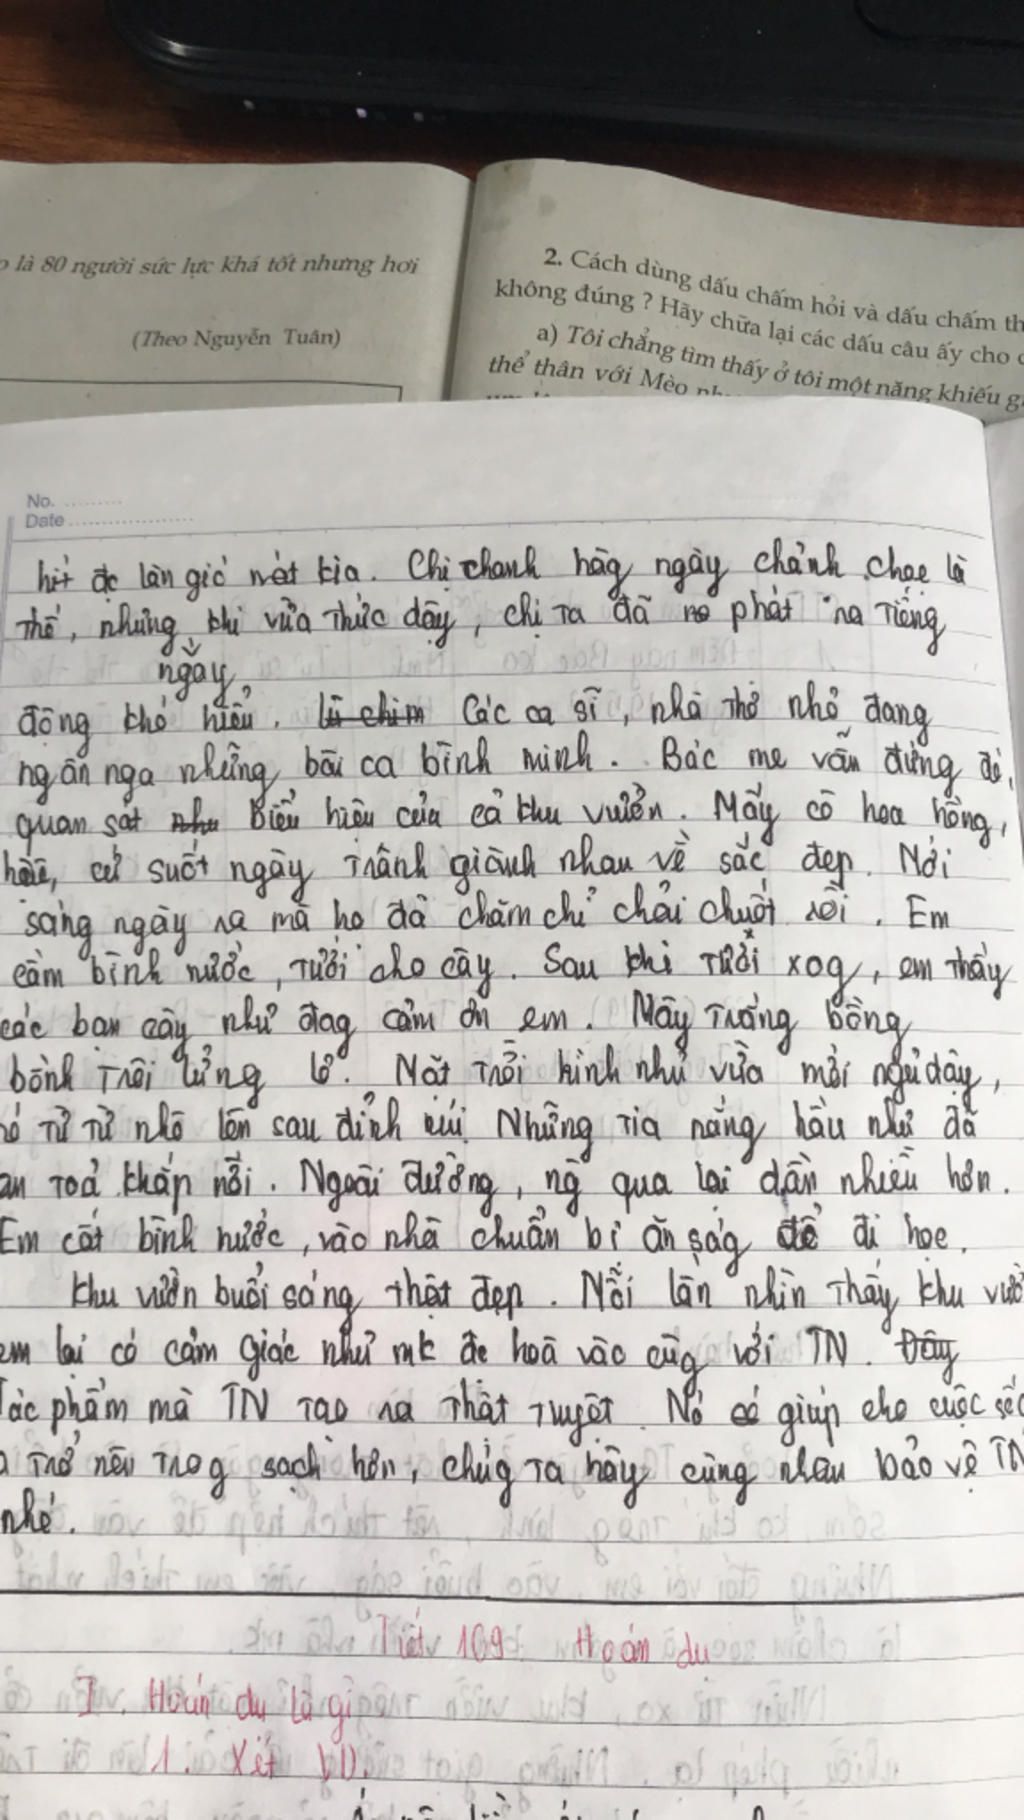 là 80 người sức lực khá tốt nhưng hơi
(Theo Nguyễn Tuân)
2. Cách dùng dấu chấm hỏi và dấu chấm th
không đúng ? Hãy chữa lại các dấu câu ấy cho
a) Tôi chẳng tìm thấy ở tôi một năng khiếu g
thể thân với Mèo
No.
Date
hít đc làn gió mát kia. Chị chanh hàg ngày chảnh choẹ là
thế, nhưng khi vừa thức dậy, chị ta đã phát ra tiếng
ngáy
động khó hiểu. Lũ chim Các ca sĩ, nhà thơ nhỏ đang
ngân nga những bài ca bình minh. Bác me vẫn đứng đó,
quan sát như biểu hiện của cả khu vườn. Mấy cô hoa hồng,
cứ suốt ngày tranh giành nhau về sắc đẹp. Mới
sáng ngày ra mà họ đã chăm chỉ chải chuốt rồi. Em
cầm bình nước, tưới cho cây. Sau khi tưới xog, em thấy
các bạn cây như đag cảm ơn em. Mây trắng bồng
bềnh trôi lửng lơ. Mặt trời hình như vừa mới ngủ dậy,
nó từ từ nhô lên sau đỉnh núi. Những tia nắng hầu như đã
lan toả khắp nơi. Ngoài đường, ng` qua lại dần nhiều hơn.
Em cất bình nước, vào nhà chuẩn bị ăn ság để đi học.
Khu vườn buổi sáng thật đẹp. Mỗi lần nhìn thấy khu vườ
em lại có cảm giác như mk đc hoà vào cùg với TN. Đây
Tác phẩm mà TN tạo ra thật tuyệt. Nó có giúp cho cuộc số
trở nên trog sạch hơn, chúg ta hãy cùng nhau bảo vệ TN
nhé.
Tiết 109 Hoán dụ
I. Hoán dụ là gì
1. Xét VD.